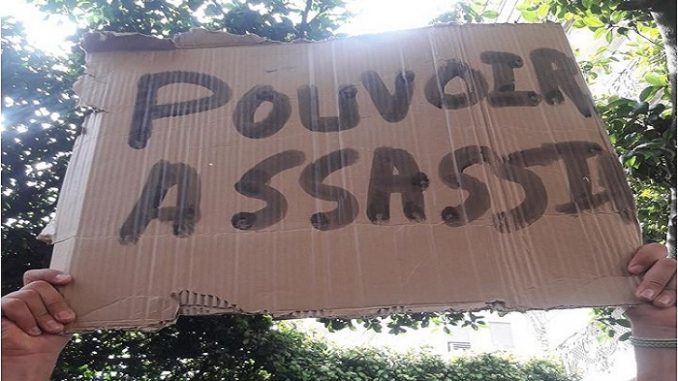 POUVOIR
ASSASSIN